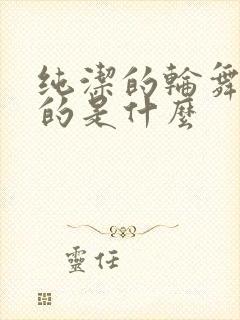 纯潔的輪舞
的是什麼
靈任